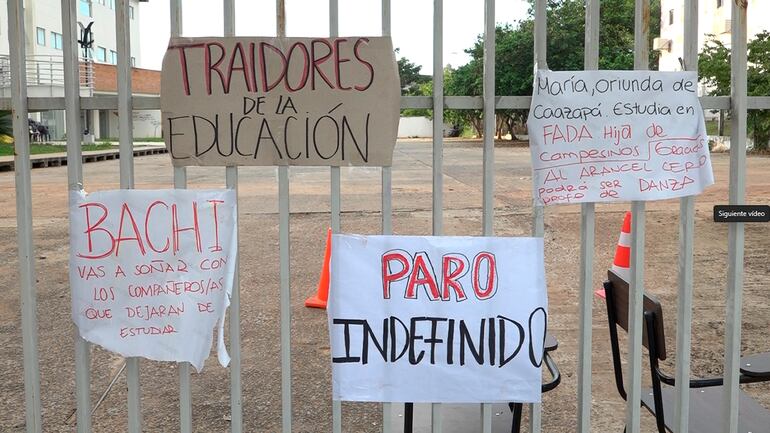 TRAIDORES
DE LA
EDUCACIÓN
María, oriunda de
Caazapá. Estudia en
FADA Hija de
campesinos, Gracias
AL ARANCEL CERO
podrá ser
profe de DANZA
BACHI
VAS A SOÑAR CON
LOS COMPAÑEROS/AS
QUE DEJARAN DE
ESTUDIAR
PARO
INDEFINIDO
Siguiente vídeo